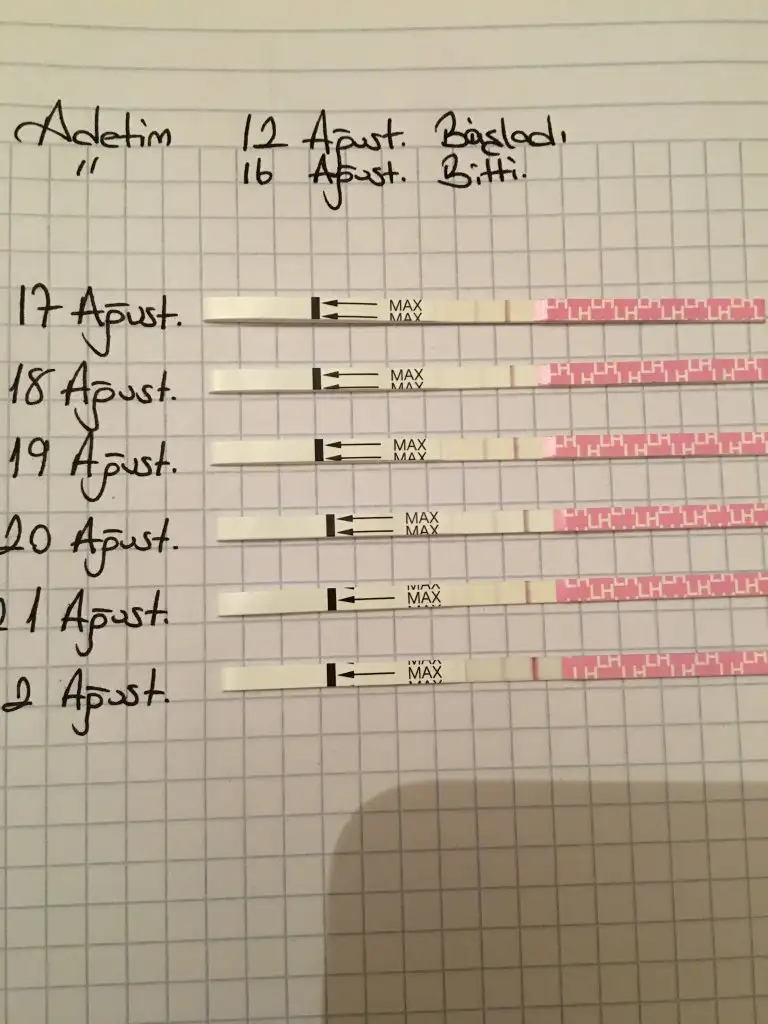 Adetim 12 Ağust. Başladı
" 16 Ağust. Bitti.
17 Ağust. MAX MAX LH LH LH LH LH LH
18 Ağust. MAX MAX LH LH LH LH LH LH
19 Ağust. MAX MAX LH LH LH LH LH LH
20 Ağust. MAX MAX LH LH LH LH
21 Ağust. MAX MAX MAX LH LH LH LH
2 Ağust. MAX MAX MAX LH LH LH LH